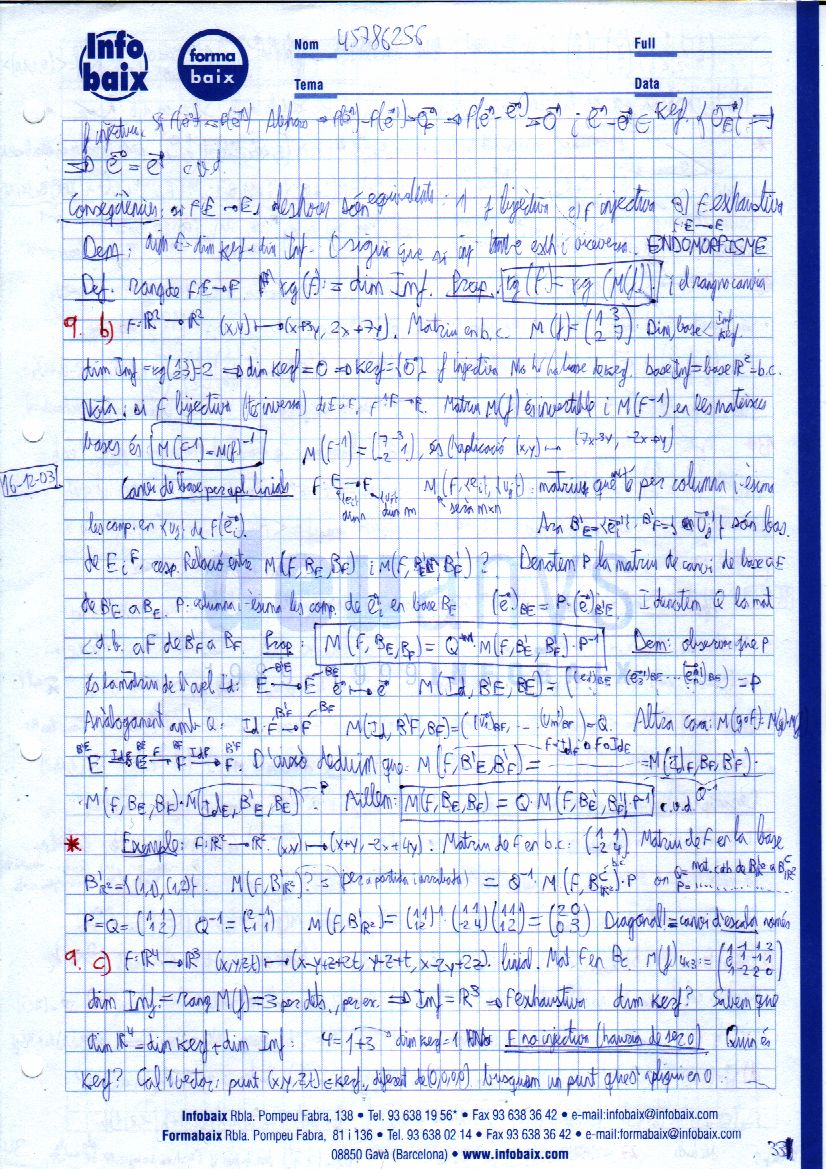 Info baix
forma baix
Nom 45786256 Full
Tema Data
f injectiva. Si f(e⃗)=f(e⃗'). Aleshores f(e⃗)-f(e⃗')=0⃗F ⇒ f(e⃗-e⃗')=0⃗ i e⃗-e⃗' ∈ Kerf = {0⃗E} ⇒
⇒ e⃗ = e⃗' c.v.d.
Conseqüències: si f: E→E, aleshores són equivalents: 1 f bijectiva 2) f injectiva 3) f exhaustiva
Dem: dim E = dim Kerf + dim Imf. O sigui que si inj també exh i viceversa. f: E→E ENDOMORFISME
Def. rang de f: E→F rg(f) := dim Imf. Prop. rg(f) = rg(M(f)) i el rang no canvia
9. b) f: ℝ²→ℝ² (x,y)↦(x+3y, 2x+7y). Matriu en b.c. M(f) = (1 3 / 2 7). Dim, base < Imf Kerf.
dim Imf = rg(1 3 / 2 7) = 2 ⇒ dim Kerf = 0 ⇒ Kerf = {0⃗} f injectiva No hi ha base de Kerf. base Imf = base ℝ² = b.c.
Nota: si f bijectiva (té inversa) de E a F, f⁻¹: F→E. Matriu M(f) és invertible i M(f⁻¹) en les mateixes
bases és M(f⁻¹) = M(f)⁻¹ M(f⁻¹) = (7 -3 / -2 1), és l'aplicació (x,y)↦(7x-3y, -2x+y)
16-12-03
Canvi de base per apl. linials f: E→F {ei} dim n {uj} dim m M(f, {ei}, {uj}): matriu que té per columna i-èsima
serà m×n
les comp. en {uj} de f(e⃗i). Ara B'E = {e⃗i'}, B'F = {u⃗j'} són bas.
de E i F, resp. Relació entre M(f, BE, BF) i M(f, B'E, B'F)? Denotem P la matriu de canvi de base a E
de B'E a BE. P: columna i-èsima les comp. de e⃗i' en base BE (e⃗)BE = P·(e⃗)B'E I denotem Q la mat
c.d.b. a F de B'F a BF. Prop: M(f, BE, BF) = Q · M(f, B'E, B'F) · P⁻¹ Dem: observar que P
és la matriu de l'apl Id: E→E e⃗→e⃗ M(Id, B'E, BE) = ((e1')BE (e2')BE ... (en')BE) = P
Anàlogament amb Q: Id: F→F M(Id, B'F, BF) = ((u1')BF, ... (um')BF) = Q. Altra cosa: M(g∘f) = M(g)·M(f)
E → E → F → F. D'això deduïm que: M(f, B'E, B'F) = f = IdF∘f∘IdE = M(IdF, BF, B'F)·
·M(f, BE, BF)·M(IdE, B'E, BE) P Q⁻¹ Aïllem: M(f, BE, BF) = Q·M(f, B'E, B'F)·P⁻¹ c.v.d
* Exemple: f: ℝ²→ℝ². (x,y)↦(x+y, -2x+4y). Matriu de f en b.c: (1 1 / -2 4). Matriu de f en la base
B'ℝ² = {(1,1), (1,2)}. M(f, B'ℝ²)? = (per a partida i arribada) = Q⁻¹·M(f, Bℝ²)·P on Q = mat. c.d.b. de B'ℝ² a Bℝ² P = .............
P=Q=(1 1 / 1 2) Q⁻¹ = (2 -1 / -1 1) M(f, B'ℝ²) = (1 1 / 1 2)⁻¹ · (1 1 / -2 4)(1 1 / 1 2) = (2 0 / 0 3) Diagonal! = canvi d'escala només
9. c) f: ℝ⁴→ℝ³ (x,y,z,t)↦(x-y+z+2t, y-z+t, x-2y+2z). linial. Mat f en Bc. M(f)4x3 := (1 -1 1 2 / 0 1 -1 1 / 1 -2 2 0)
dim Imf = rang M(f) = 3 per dets., per ex. ⇒ Imf = ℝ³ ⇒ f exhaustiva dim Kerf? Sabem que
dim ℝ⁴ = dim Kerf + dim Imf: 4 = 1+3 dim Kerf = 1 f no injectiva (hauria de ser 0) Quin és
Kerf? Cal 1 vector: punt (x,y,z,t) ∈ Kerf, diferent de (0,0,0,0) busquem un punt que s'apliqui en 0
Infobaix Rbla. Pompeu Fabra, 138 • Tel. 93 638 19 56* • Fax 93 638 36 42 • e-mail:infobaix@infobaix.com
Formabaix Rbla. Pompeu Fabra, 81 i 136 • Tel. 93 638 02 14 • Fax 93 638 36 42 • e-mail:formabaix@infobaix.com
08850 Gavà (Barcelona) • www.infobaix.com
33